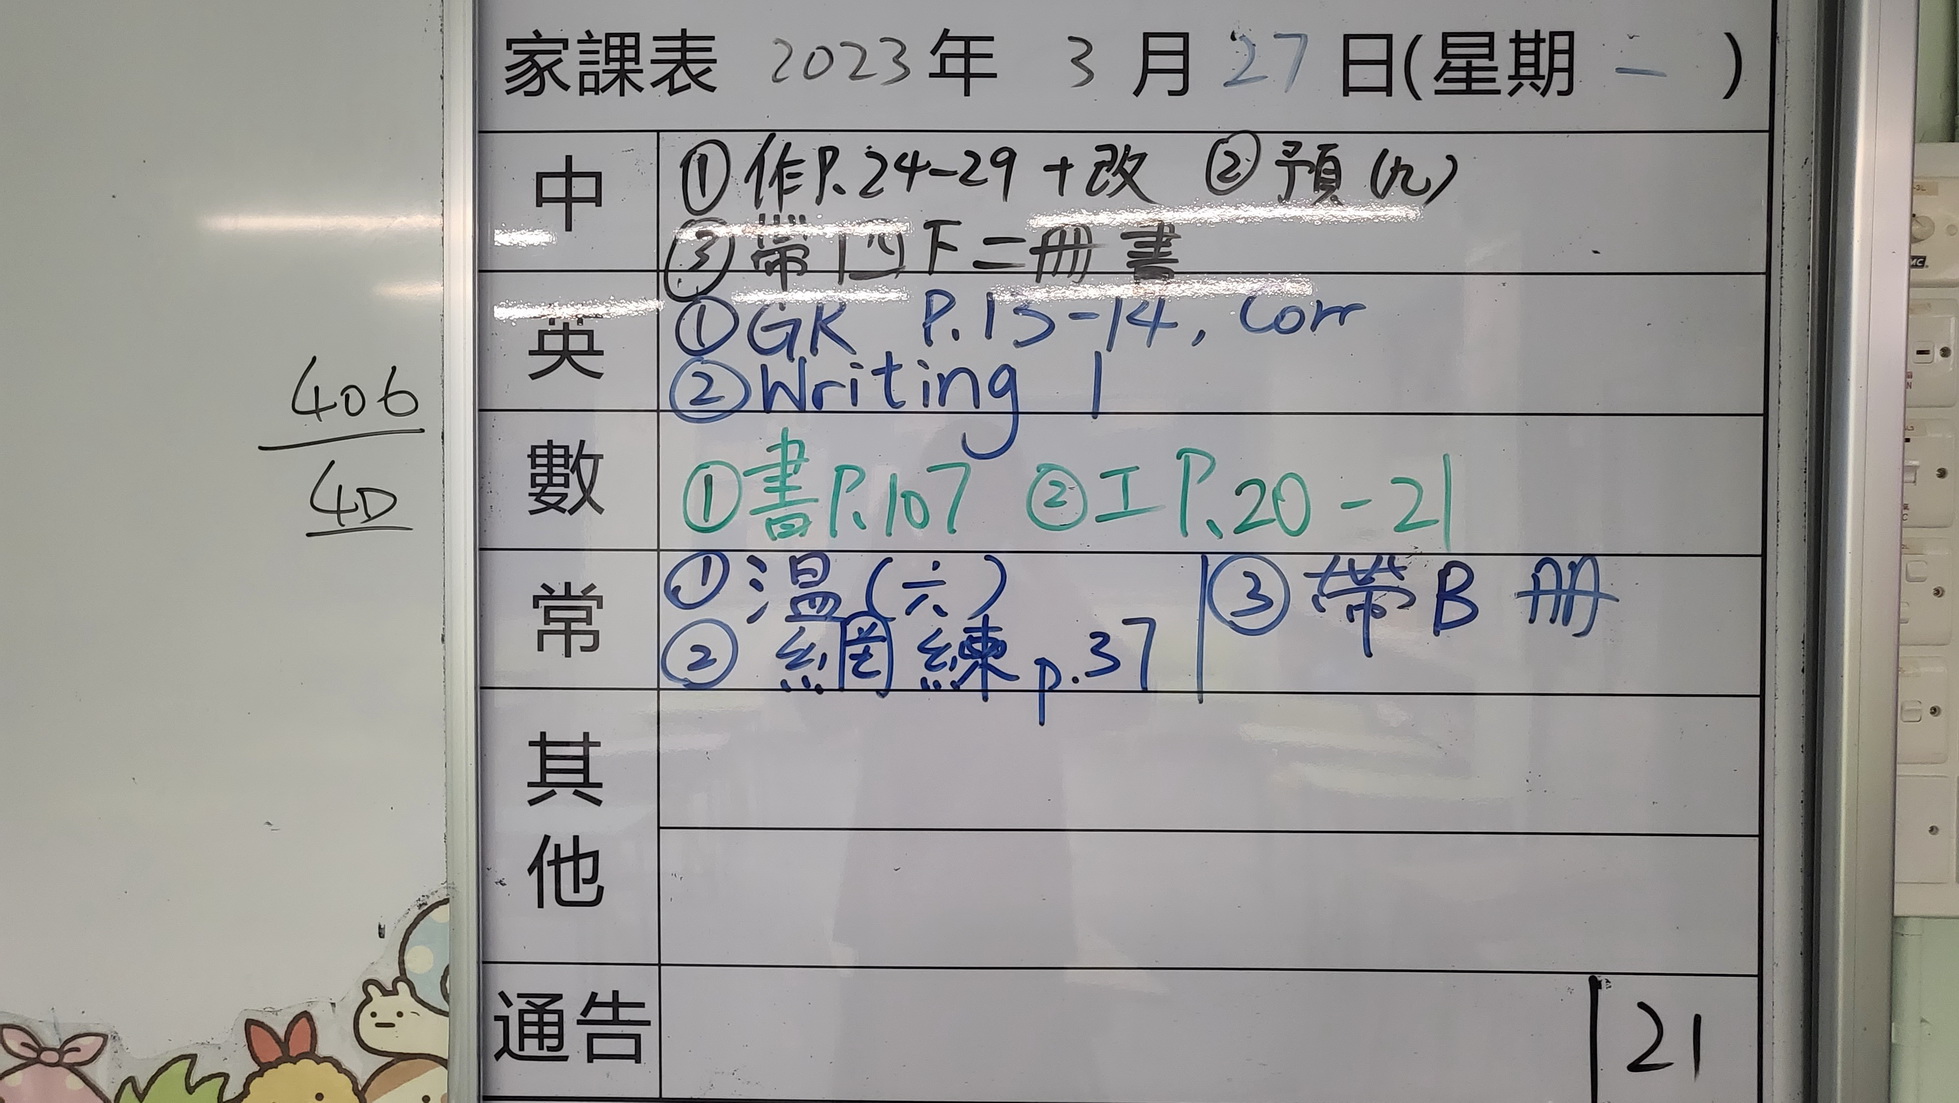 家課表 2023年 3月27日(星期一)
中
①作P.24-29+改 ②預(九)
③帶四下二冊書
英
①GK P.13-14, Corr
②Writing 1
數
①書P.107 ②工P.20-21
常
①溫(六)
②網練p.37
③帶B冊
其他
通告
21
406
4D